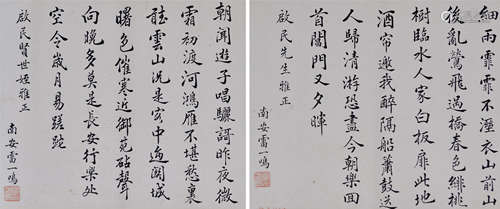 細雨霏霏不溼衣山前山
後亂鶯飛過橋春色緋桃
樹臨水人家白板扉此地
酒帘邀我醉隔船蕭鼓送
人歸清游恐盡今朝樂回
首閶門又夕暉
啟民先生雅正
南安雷一鳴
朝聞遊子唱驪詞昨夜微
霜初渡河鴻雁不堪愁裏
聽雲山況是客中過關城
曙色催寒近御苑砧聲
向晚多莫是長安行樂處
空令歲月易蹉跎
啟民賢世姪雅正
南安雷一鳴